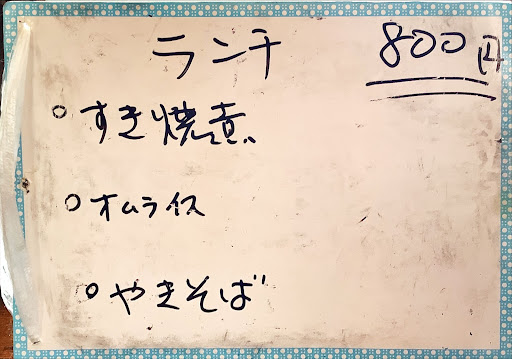 ランチ 800円
○ すき焼煮
○ オムライス
○ やきそば